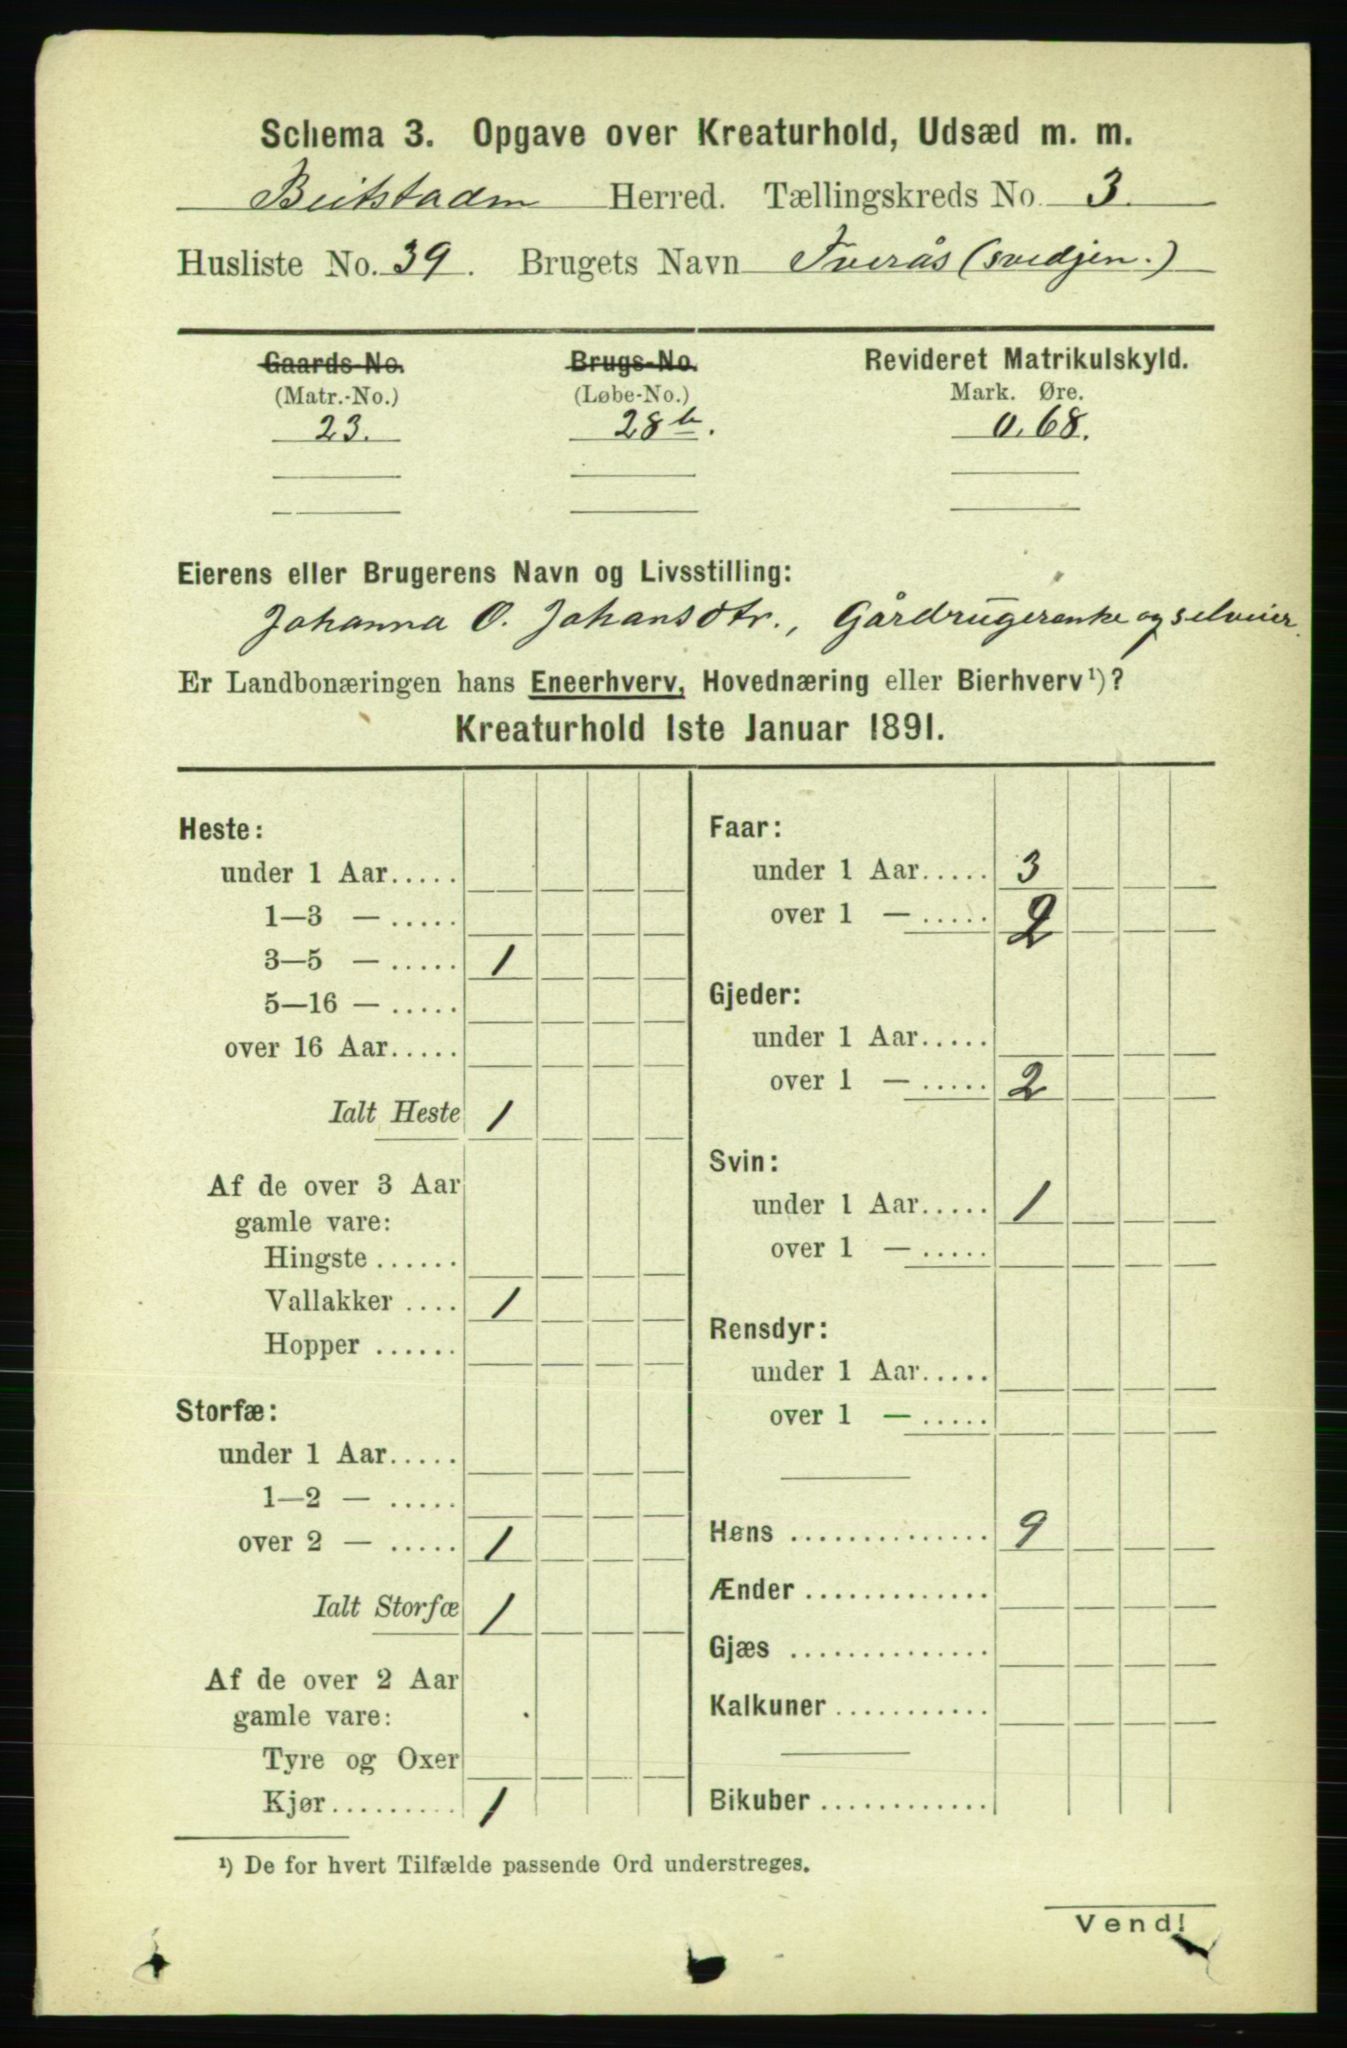 Schema 3. Opgave over Kreaturhold, Udsæd m. m.
Beitstaden Herred. Tællingskreds No. 3.
Husliste No. 39. Brugets Navn Tverås (svedjen.)
Gaards-No. Brugs-No. Revideret Matrikulskyld.
(Matr.-No.) (Løbe-No.) Mark. Øre.
23. 28 b. 0.68.
Eierens eller Brugerens Navn og Livsstilling:
Johanna O. Johansdtr., Gårdrugerenke og selveier.
Er Landbonæringen hans Eneerhverv, Hovednæring eller Bierhverv¹)?
Kreaturhold 1ste Januar 1891.
Heste:
under 1 Aar.....
1—3 — .....
3—5 — ..... 1
5—16 — .....
over 16 Aar.....
Ialt Heste 1
Af de over 3 Aar
gamle vare:
Hingste ......
Vallakker .... 1
Hopper ......
Storfæ:
under 1 Aar.....
1—2 — .....
over 2 — ..... 1
Ialt Storfæ 1
Af de over 2 Aar
gamle vare:
Tyre og Oxer
Kjør......... 1
Faar:
under 1 Aar..... 3
over 1 — ..... 2
Gjeder:
under 1 Aar.....
over 1 — ..... 2
Svin:
under 1 Aar..... 1
over 1 — .....
Rensdyr:
under 1 Aar.....
over 1 — .....
Høns .............. 9
Ænder .............
Gjæs ..............
Kalkuner ...........
Bikuber ............
¹) De for hvert Tilfælde passende Ord understreges.
Vend!